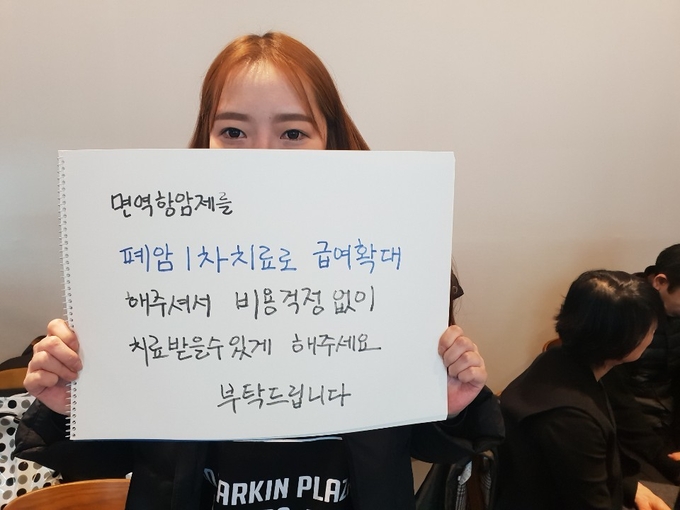 면역항암제를
폐암 1차치료로 급여확대
해주셔서 비용걱정 없이
치료받을수있게 해주세요
부탁드립니다
PARKIN PLAZ